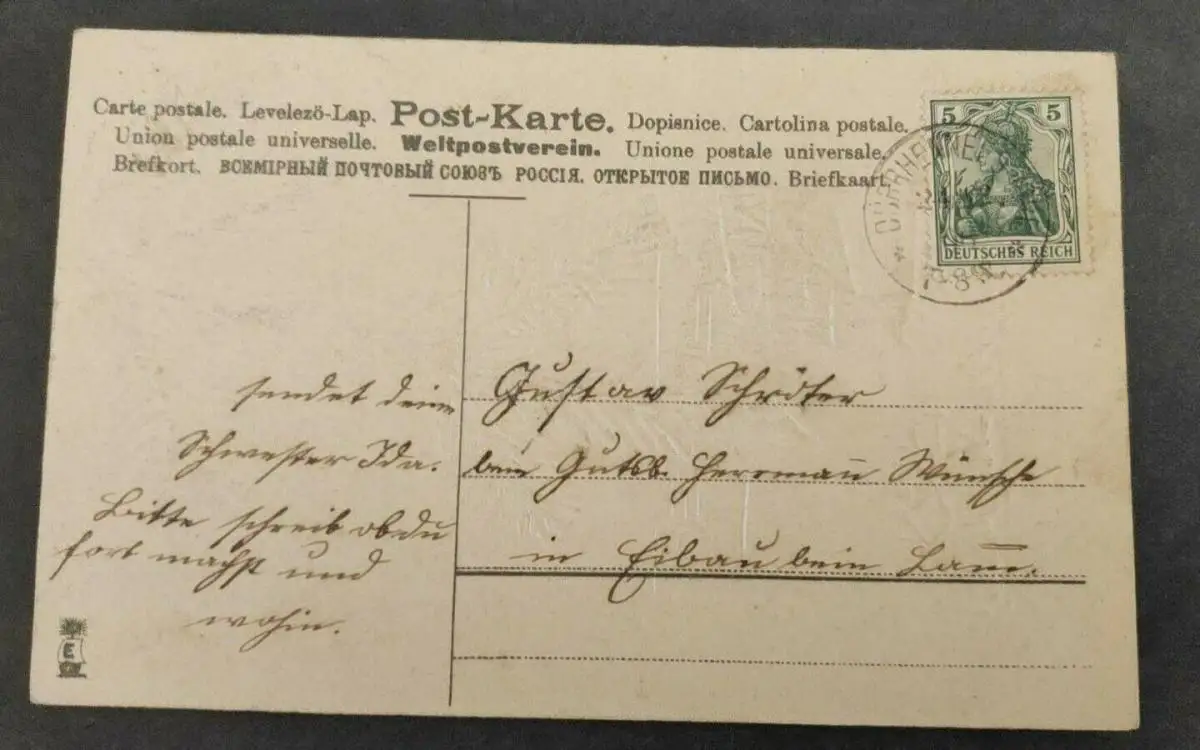 Carte postale. Levelezö-Lap. Post-Karte. Dopisnice. Cartolina postale.
Union postale universelle. Weltpostverein. Unione postale universale.
Brefkort. ВСЕМІРНЫЙ ПОЧТОВЫЙ СОЮЗЪ РОССІЯ. ОТКРЫТОЕ ПИСЬМО. Briefkaart.
5 5
DEUTSCHES REICH
sendet deine
Schwester Ida.
Bitte schreib ob du
fort machst und
wohin.
E
Gustav Schröter
beim Gutsb. Herrmañ Wünsche
in Eibau beim Lam̄.